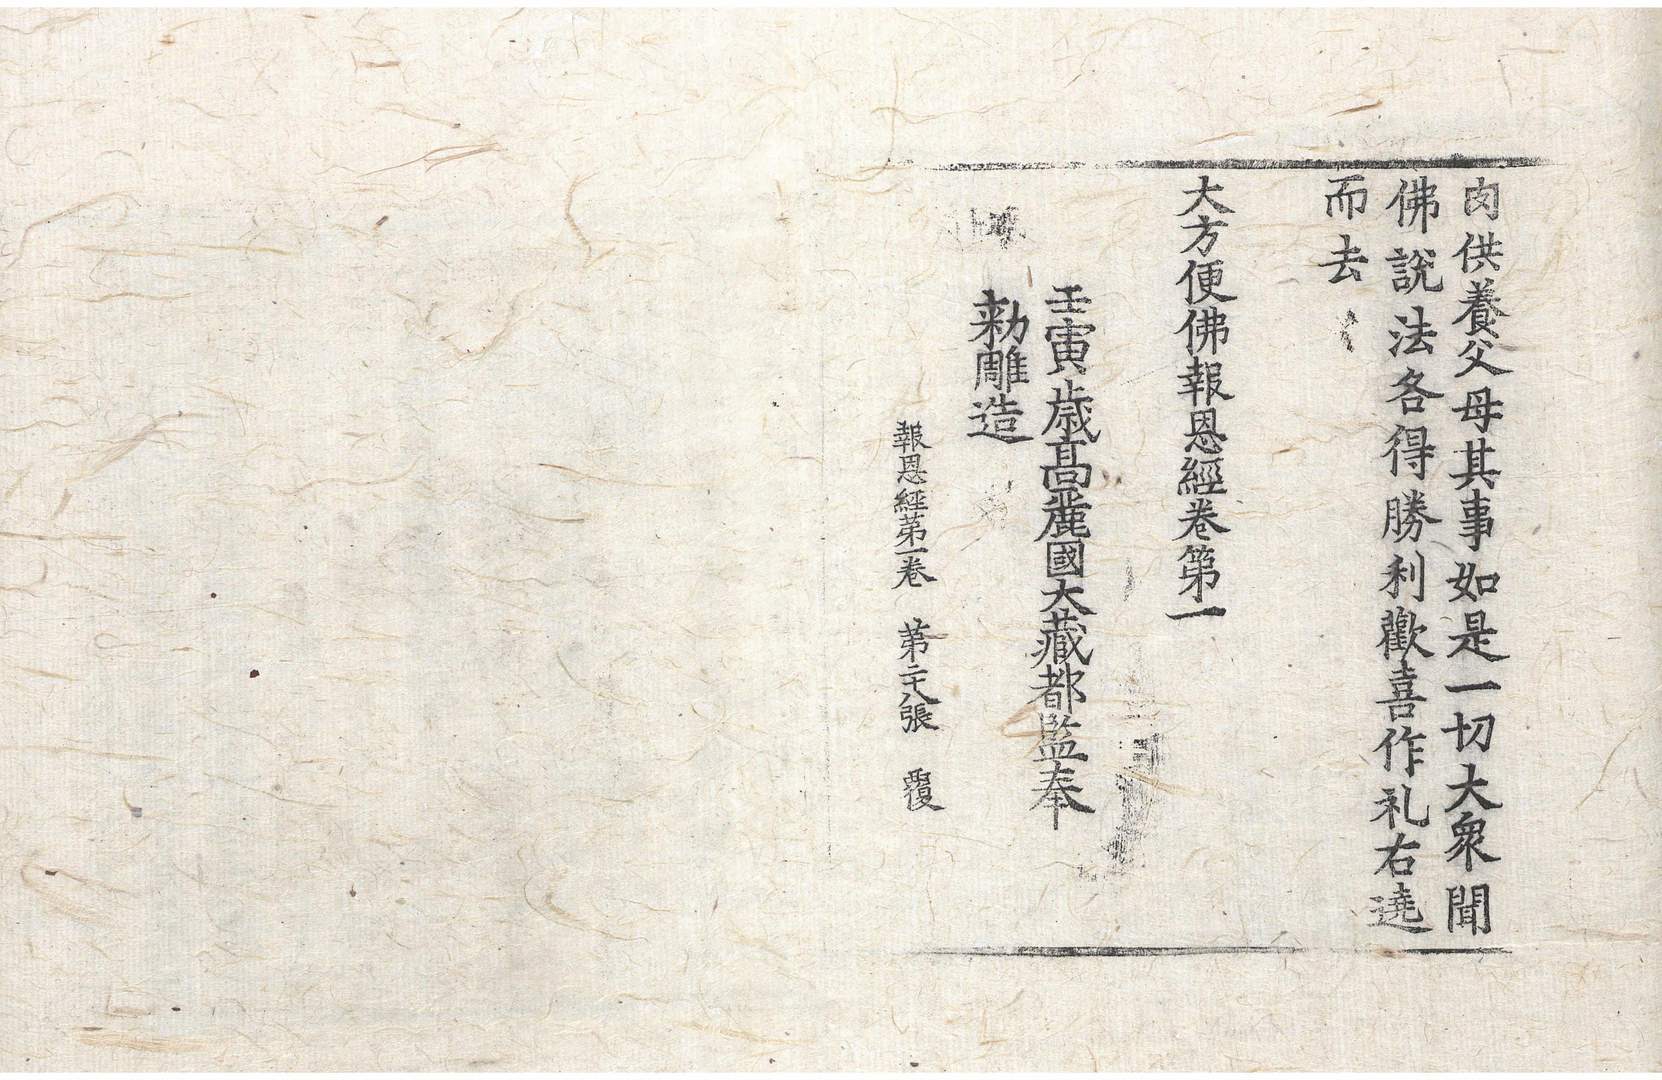 肉供養父母其事如是一切大衆聞
佛說法各得勝利歡喜作礼右遶
而去
大方便佛報恩經卷第一
壬寅歲高麗國大藏都監奉
勅雕造
報恩經苐一卷 苐二十八張 覆